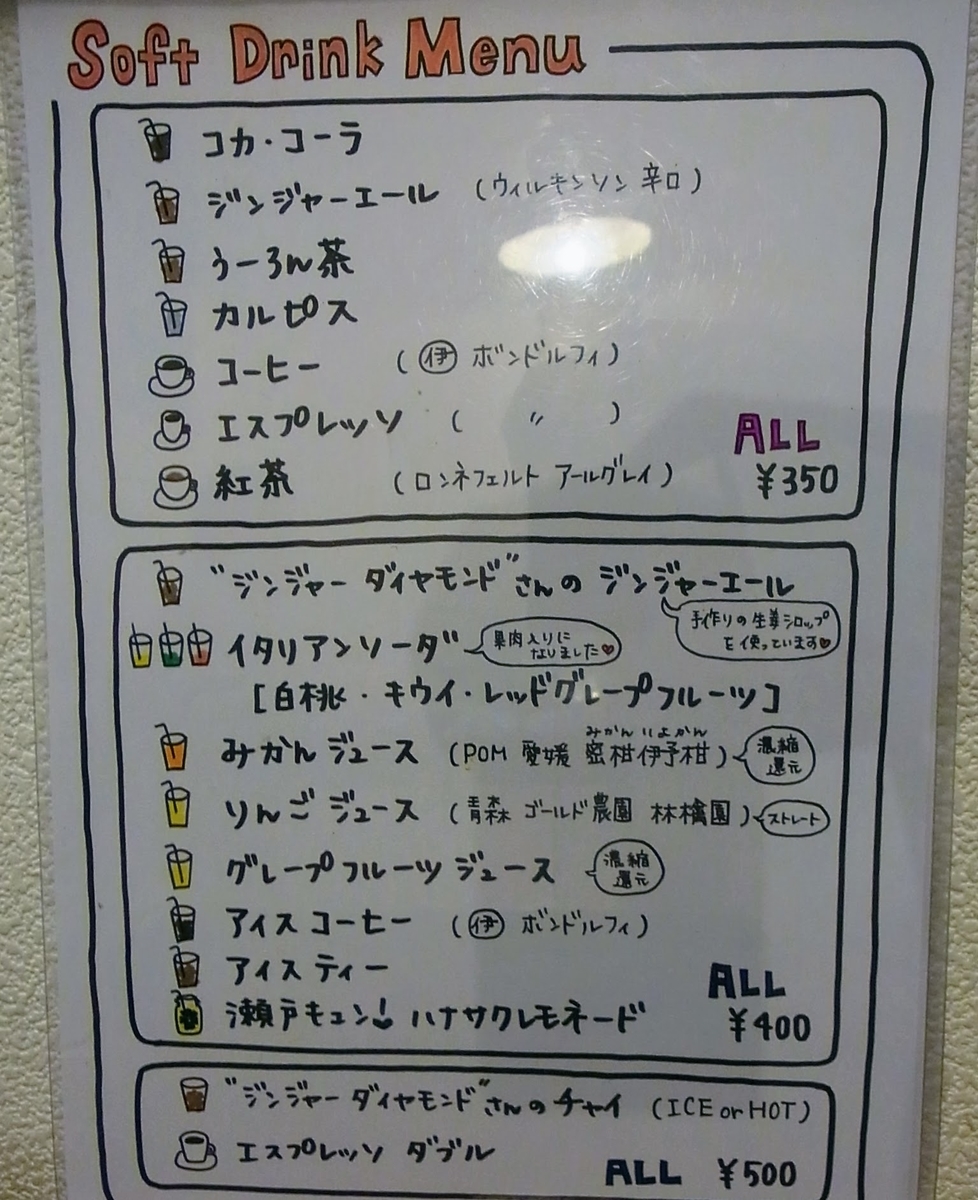 Soft Drink Menu
コカ・コーラ
ジンジャーエール (ウィルキンソン 辛口)
うーろん茶
カルピス
コーヒー (㋑伊 ボンドルフィ)
エスプレッソ ( 〃 )
紅茶 (ロンネフェルト アールグレイ)
ALL
¥350
"ジンジャー ダイヤモンド"さんの ジンジャーエール
手作りの生姜シロップ
を使っています♥
イタリアンソーダ
果肉入りに
なりました♥
[白桃・キウイ・レッドグレープフルーツ]
みかん いよかん
みかんジュース (POM 愛媛 蜜柑伊予柑)
濃縮
還元
りんごジュース (青森 ゴールド農園 林檎園)
ストレート
グレープフルーツ ジュース
濃縮
還元
アイスコーヒー (伊 ボンドルフィ)
アイスティー
瀬戸キュン! ハナサクレモネード
ALL
¥400
"ジンジャー ダイヤモンド"さんのチャイ (ICE or HOT)
エスプレッソ ダブル
ALL ¥500